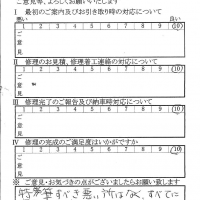 ご意見等、よろしくお願いいたします
Ⅰ 最初のご案内及びお引き取り時の対応について
悪い 良い
1 2 3 4 5 6 7 8 9 10
ご意見
Ⅱ 修理のお見積、修理着工連絡の対応について
1 2 3 4 5 6 7 8 9 10
ご意見
Ⅲ 修理完了のご報告及び納車時対応について
1 2 3 4 5 6 7 8 9 10
ご意見
Ⅳ 修理の完成のご満足度はいかがですか
1 2 3 4 5 6 7 8 9 10
ご意見
※ ご意見・お気づきの点がございましたらお願い致します
特筆すべき悪い所はなく、すべてに